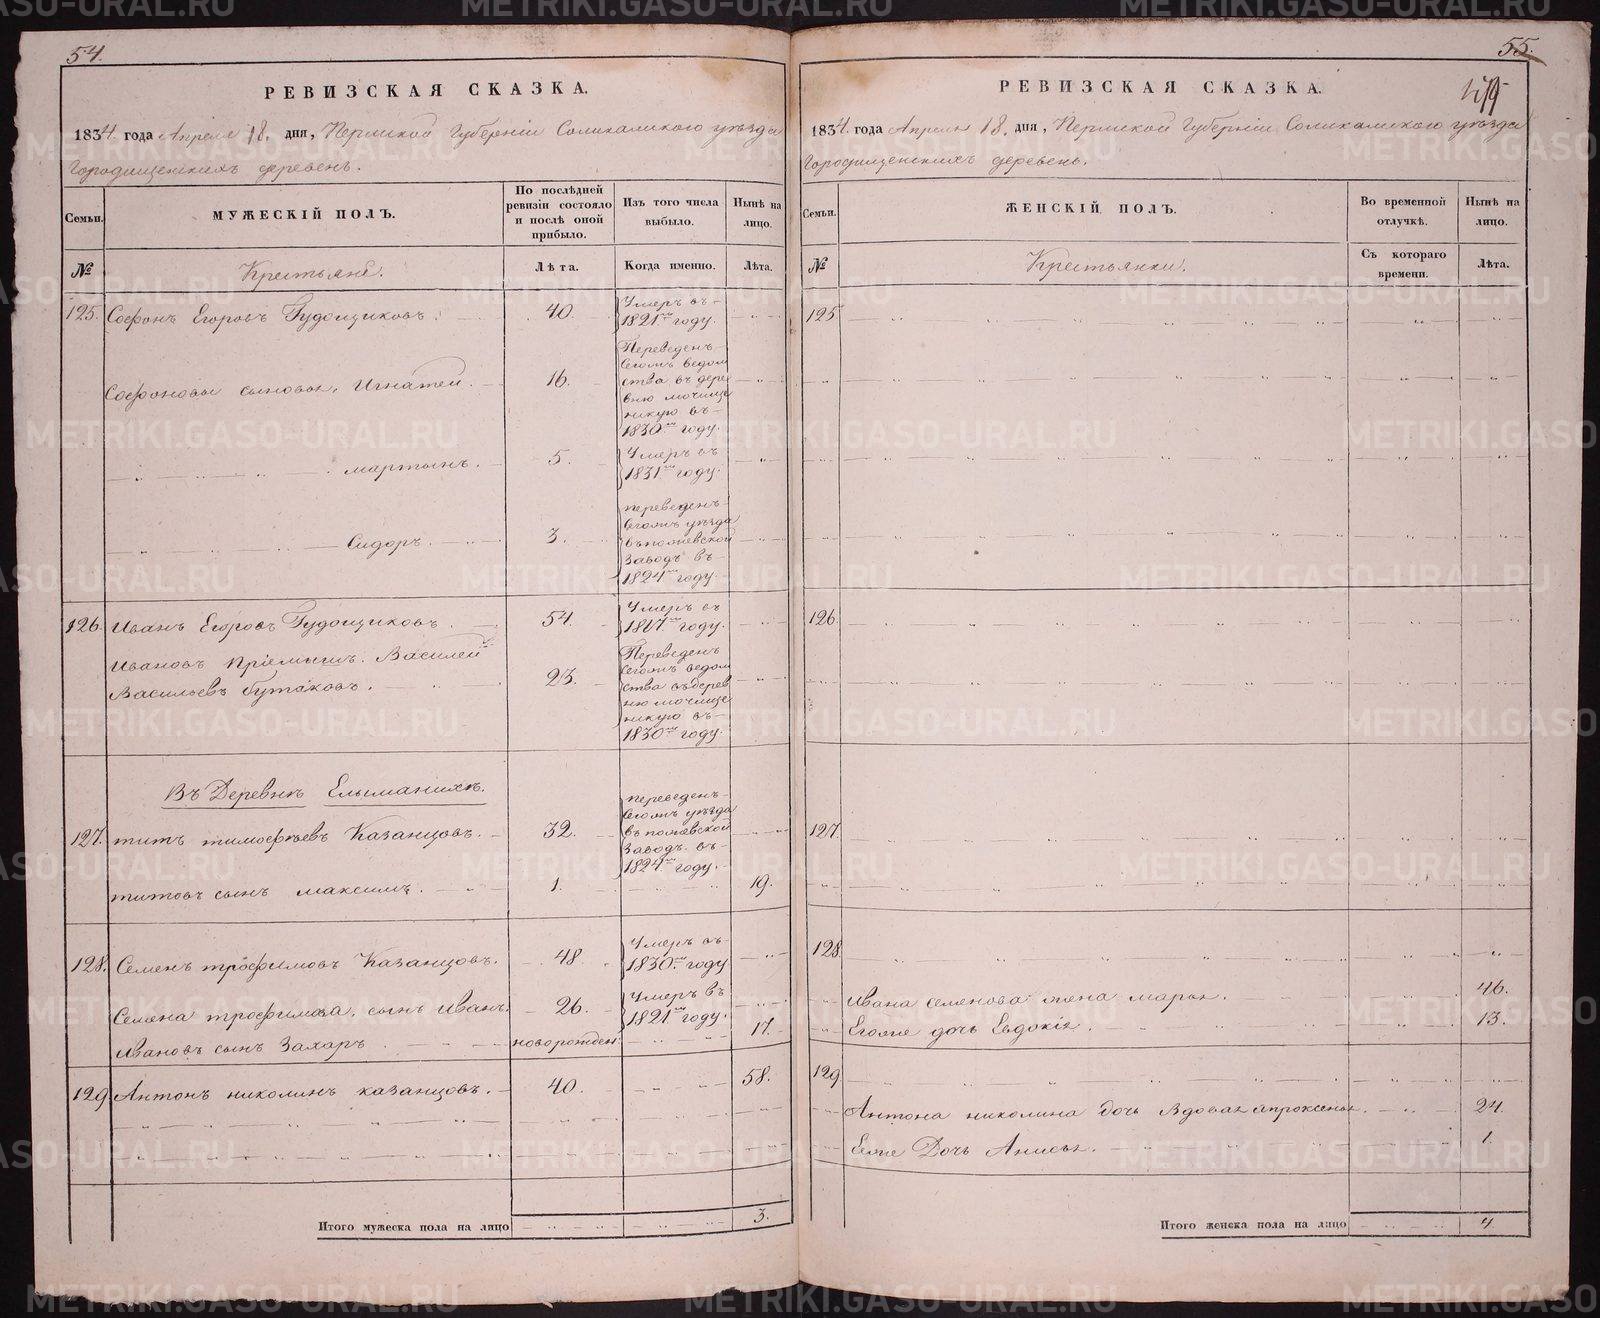 54.
РЕВИЗСКАЯ СКАЗКА.
1834. года Апреля 18. дня, Пермской Губернiи Соликамского уѣзда
Городищенскихъ деревень.
Семьи.
МУЖЕСКIЙ ПОЛЪ.
По послѣдней ревизiи состояло и послѣ оной прибыло.
Изъ того числа выбыло.
Нынѣ на лицо.
№
Крестьяне.
Лѣта.
Когда именно.
Лѣта.
125. Софонъ Егоровъ Гудощиковъ. 40. Умеръ въ
1821мъ году.
Софоновы сыновья, Игнатей. 16. Переведенъ
Сегожъ ведом
ства въ дере
вню мочище
нскую въ
1830мъ году.
мартынъ. 5. Умеръ въ
1831мъ году.
Сидоръ. 3. переведенъ
Сегожъ уѣзда
въ пожевской
Заводъ въ
1824мъ году.
126. Иванъ Егоровъ Гудощиковъ. 54. Умеръ въ
1817мъ году.
Ивановъ прiемышъ. Василей
Васильевъ бутаковъ. 23. Переведенъ
Сегожъ ведом
ства въ дерев
ню мочище
нскую въ
1830мъ году.
Въ Деревне
127. титъ тимофѣевъ Казанцовъ. 32. переведенъ
Сегожъ уѣзда
въ пожевской
Заводъ. въ
1824мъ году.
титовъ сынъ максимъ. 1. 19.
128. Семенъ трофимовъ Казанцовъ. 48. Умеръ въ
1830мъ году
Семена трофимова, сынъ Иванъ. 26. Умеръ въ
1821мъ году.
Ивановъ сынъ Захаръ новорожден 17.
129 Антонъ николинъ казанцовъ. 40. 58.
Итого мужеска пола на лицо 3.
55.
РЕВИЗСКАЯ СКАЗКА.
1834. года Апреля 18. дня, Пермской Губернiи Соликамского уѣзда
Городищенскихъ деревень.
Семьи.
ЖЕНСКIЙ ПОЛЪ.
Во временной отлучкѣ.
Нынѣ на лицо.
№
Крестьянки.
Съ котораго времени.
Лѣта.
125
126.
127.
128.
Ивана семенова жена марья. 46.
Егоже дочь Евдокiя. 13.
129
Антона николина дочь вдовая апроксенья. 24.
Еяже Дочь Анисья. 1.
Итого женска пола на лицо 4
METRIKI.GASO-URAL.RU